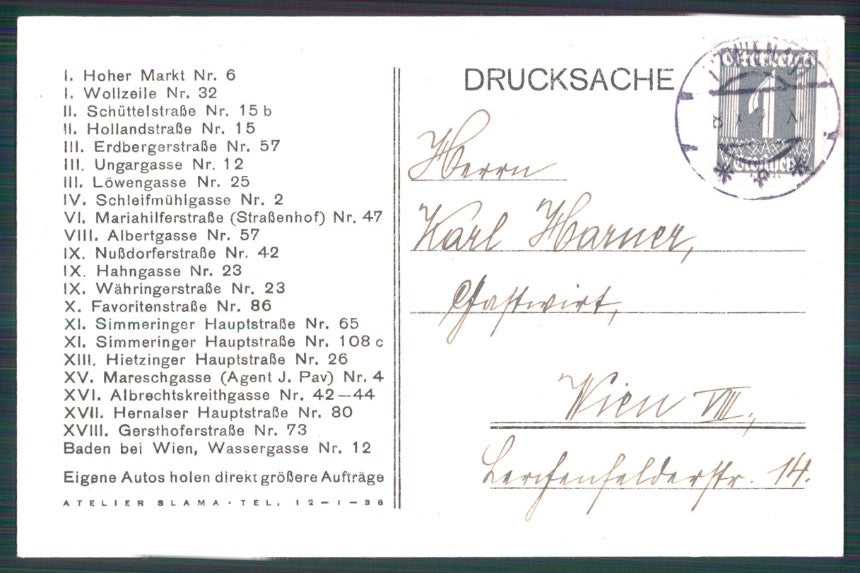 I. Hoher Markt Nr. 6
I. Wollzeile Nr. 32
II. Schüttelstraße Nr. 15 b
II. Hollandstraße Nr. 15
III. Erdbergerstraße Nr. 57
III. Ungargasse Nr. 12
III. Löwengasse Nr. 25
IV. Schleifmühlgasse Nr. 2
VI. Mariahilferstraße (Straßenhof) Nr. 47
VIII. Albertgasse Nr. 57
IX. Nußdorferstraße Nr. 42
IX. Hahngasse Nr. 23
IX. Währingerstraße Nr. 23
X. Favoritenstraße Nr. 86
XI. Simmeringer Hauptstraße Nr. 65
XI. Simmeringer Hauptstraße Nr. 108 c
XIII. Hietzinger Hauptstraße Nr. 26
XV. Mareschgasse (Agent J. Pav) Nr. 4
XVI. Albrechtskreithgasse Nr. 42—44
XVII. Hernalser Hauptstraße Nr. 80
XVIII. Gersthoferstraße Nr. 73
Baden bei Wien, Wassergasse Nr. 12
Eigene Autos holen direkt größere Aufträge
ATELIER SLAMA · TEL. 12–1–36
DRUCKSACHE
Österreich
1
Groschen
Herrn
Karl Harner,
Gastwirt,
Wien VIII.,
Lerchenfelderstr. 14.